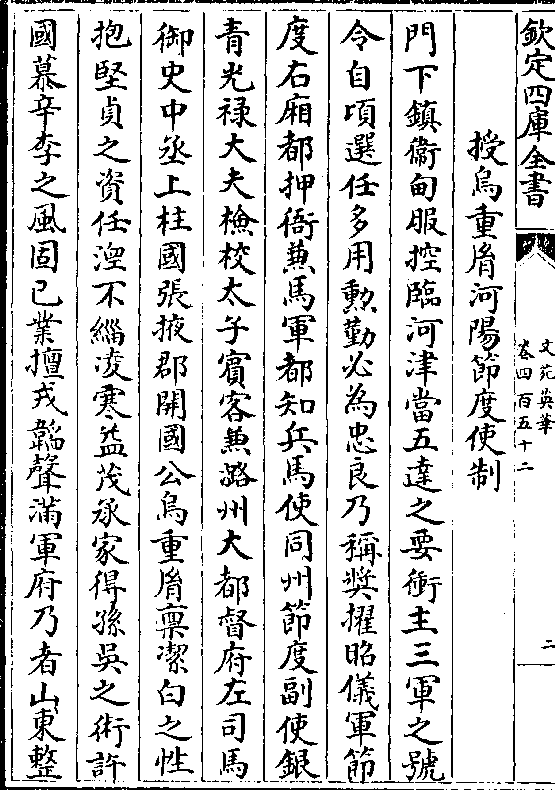 欽定四庫全書
文苑英華
卷四百五十二
二
授烏重𦙍河陽節度使制
門下鎮衞甸服控臨河津當五達之要衝主三軍之號
令自頃選任多用勲勤必為忠良乃稱奬擢昭儀軍節
度右廂都押衙兼馬軍都知兵馬使同州節度副使銀
青光禄大夫檢校太子賓客兼潞州大都督府左司馬
御史中丞上柱國張掖郡開國公烏重𦙍禀潔白之性
抱堅貞之資任涅不緇凌寒益茂承家得孫吳之術許
國慕辛李之風固已業擅戎韜聲滿軍府乃者山東整